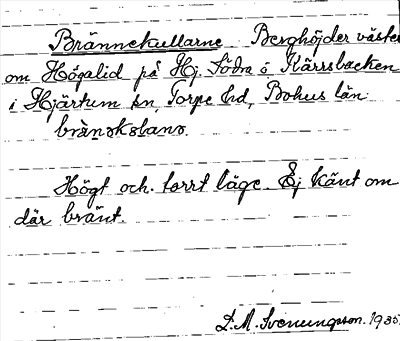 Brännekullarne Berghöjder väster
om Högalid på Hj. Södra o Kärrsbacken
i Hjärtum sn, Torpe hd, Bohus län.
brànəkəlanə
Högt och torrt läge. Ej känt om
där bränt.
D.M. Svenungsson. 1935